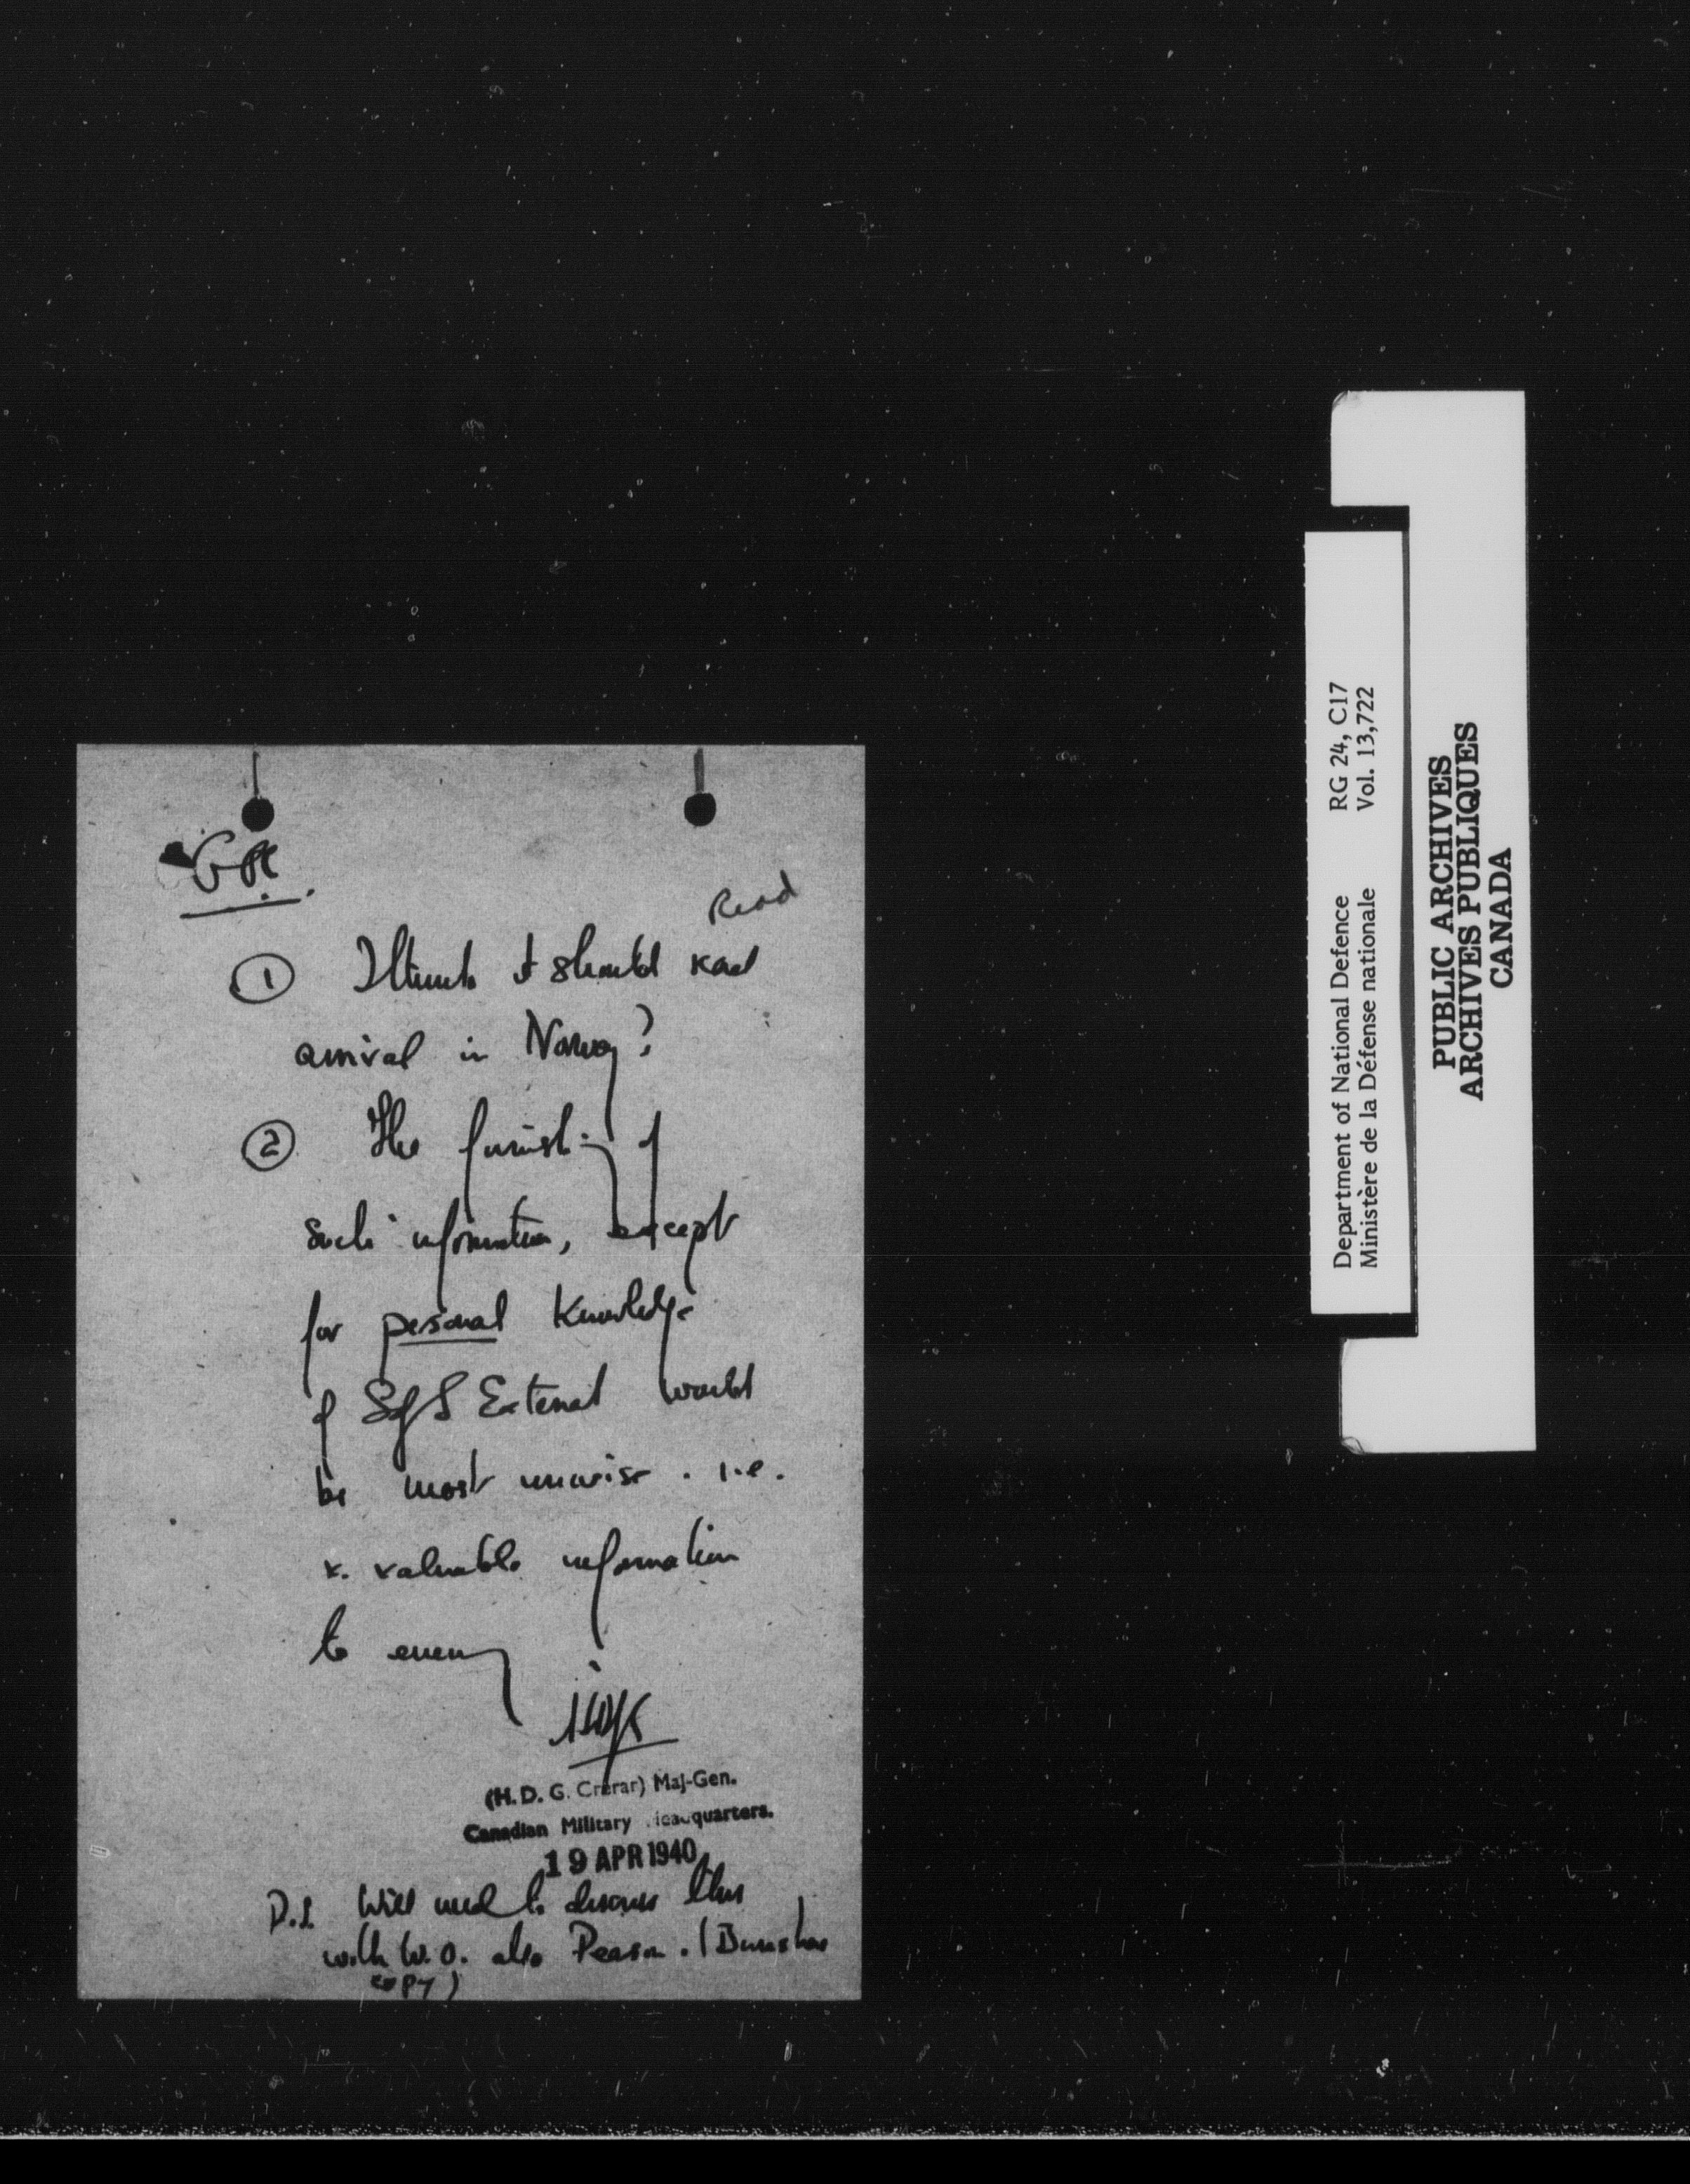 Read
① I think it should read
arrival in Norway?
② The furnishing of
such information, except
for personal knowledge
of S of S External would
be most unwise. i.e.
v. valuable information
to enemy
(H. D. G. Crerar) Maj-Gen.
Canadian Military Headquarters.
19 APR 1940
Will need to discuss this
with W.O. also Pearson. (
copy)
Department of National Defence RG 24, C17
Ministère de la Défense nationale Vol. 13,722
PUBLIC ARCHIVES
ARCHIVES PUBLIQUES
CANADA